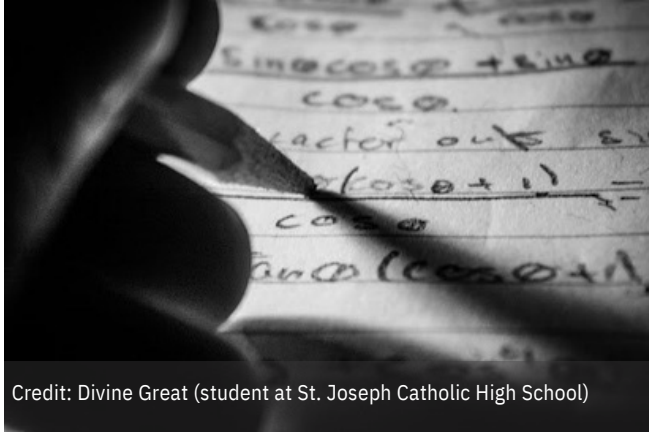 cosθ cosθ
sinθcosθ + sinθ
cosθ.
factor out
(cosθ + 1) =
cosθ
tanθ (cosθ + 1)
Credit: Divine Great (student at St. Joseph Catholic High School)